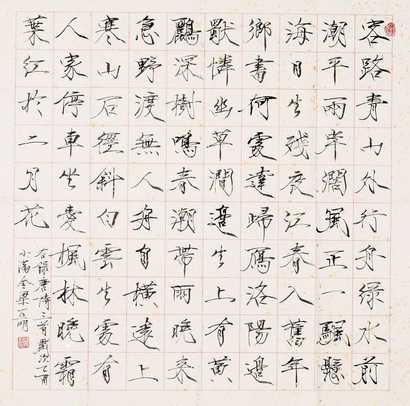 客路青山外行舟綠水前
潮平兩岸闊風正一帆懸
海日生殘夜江春入舊年
鄉書何處達歸雁洛陽邊
獨憐幽草澗邊生上有黃
鸝深樹鳴春潮帶雨晚來
急野渡無人舟自橫遠上
寒山石徑斜白雲生處有
人家停車坐愛楓林晚霜
葉紅於二月花
右錄唐詩三首歲次乙酉
小滿